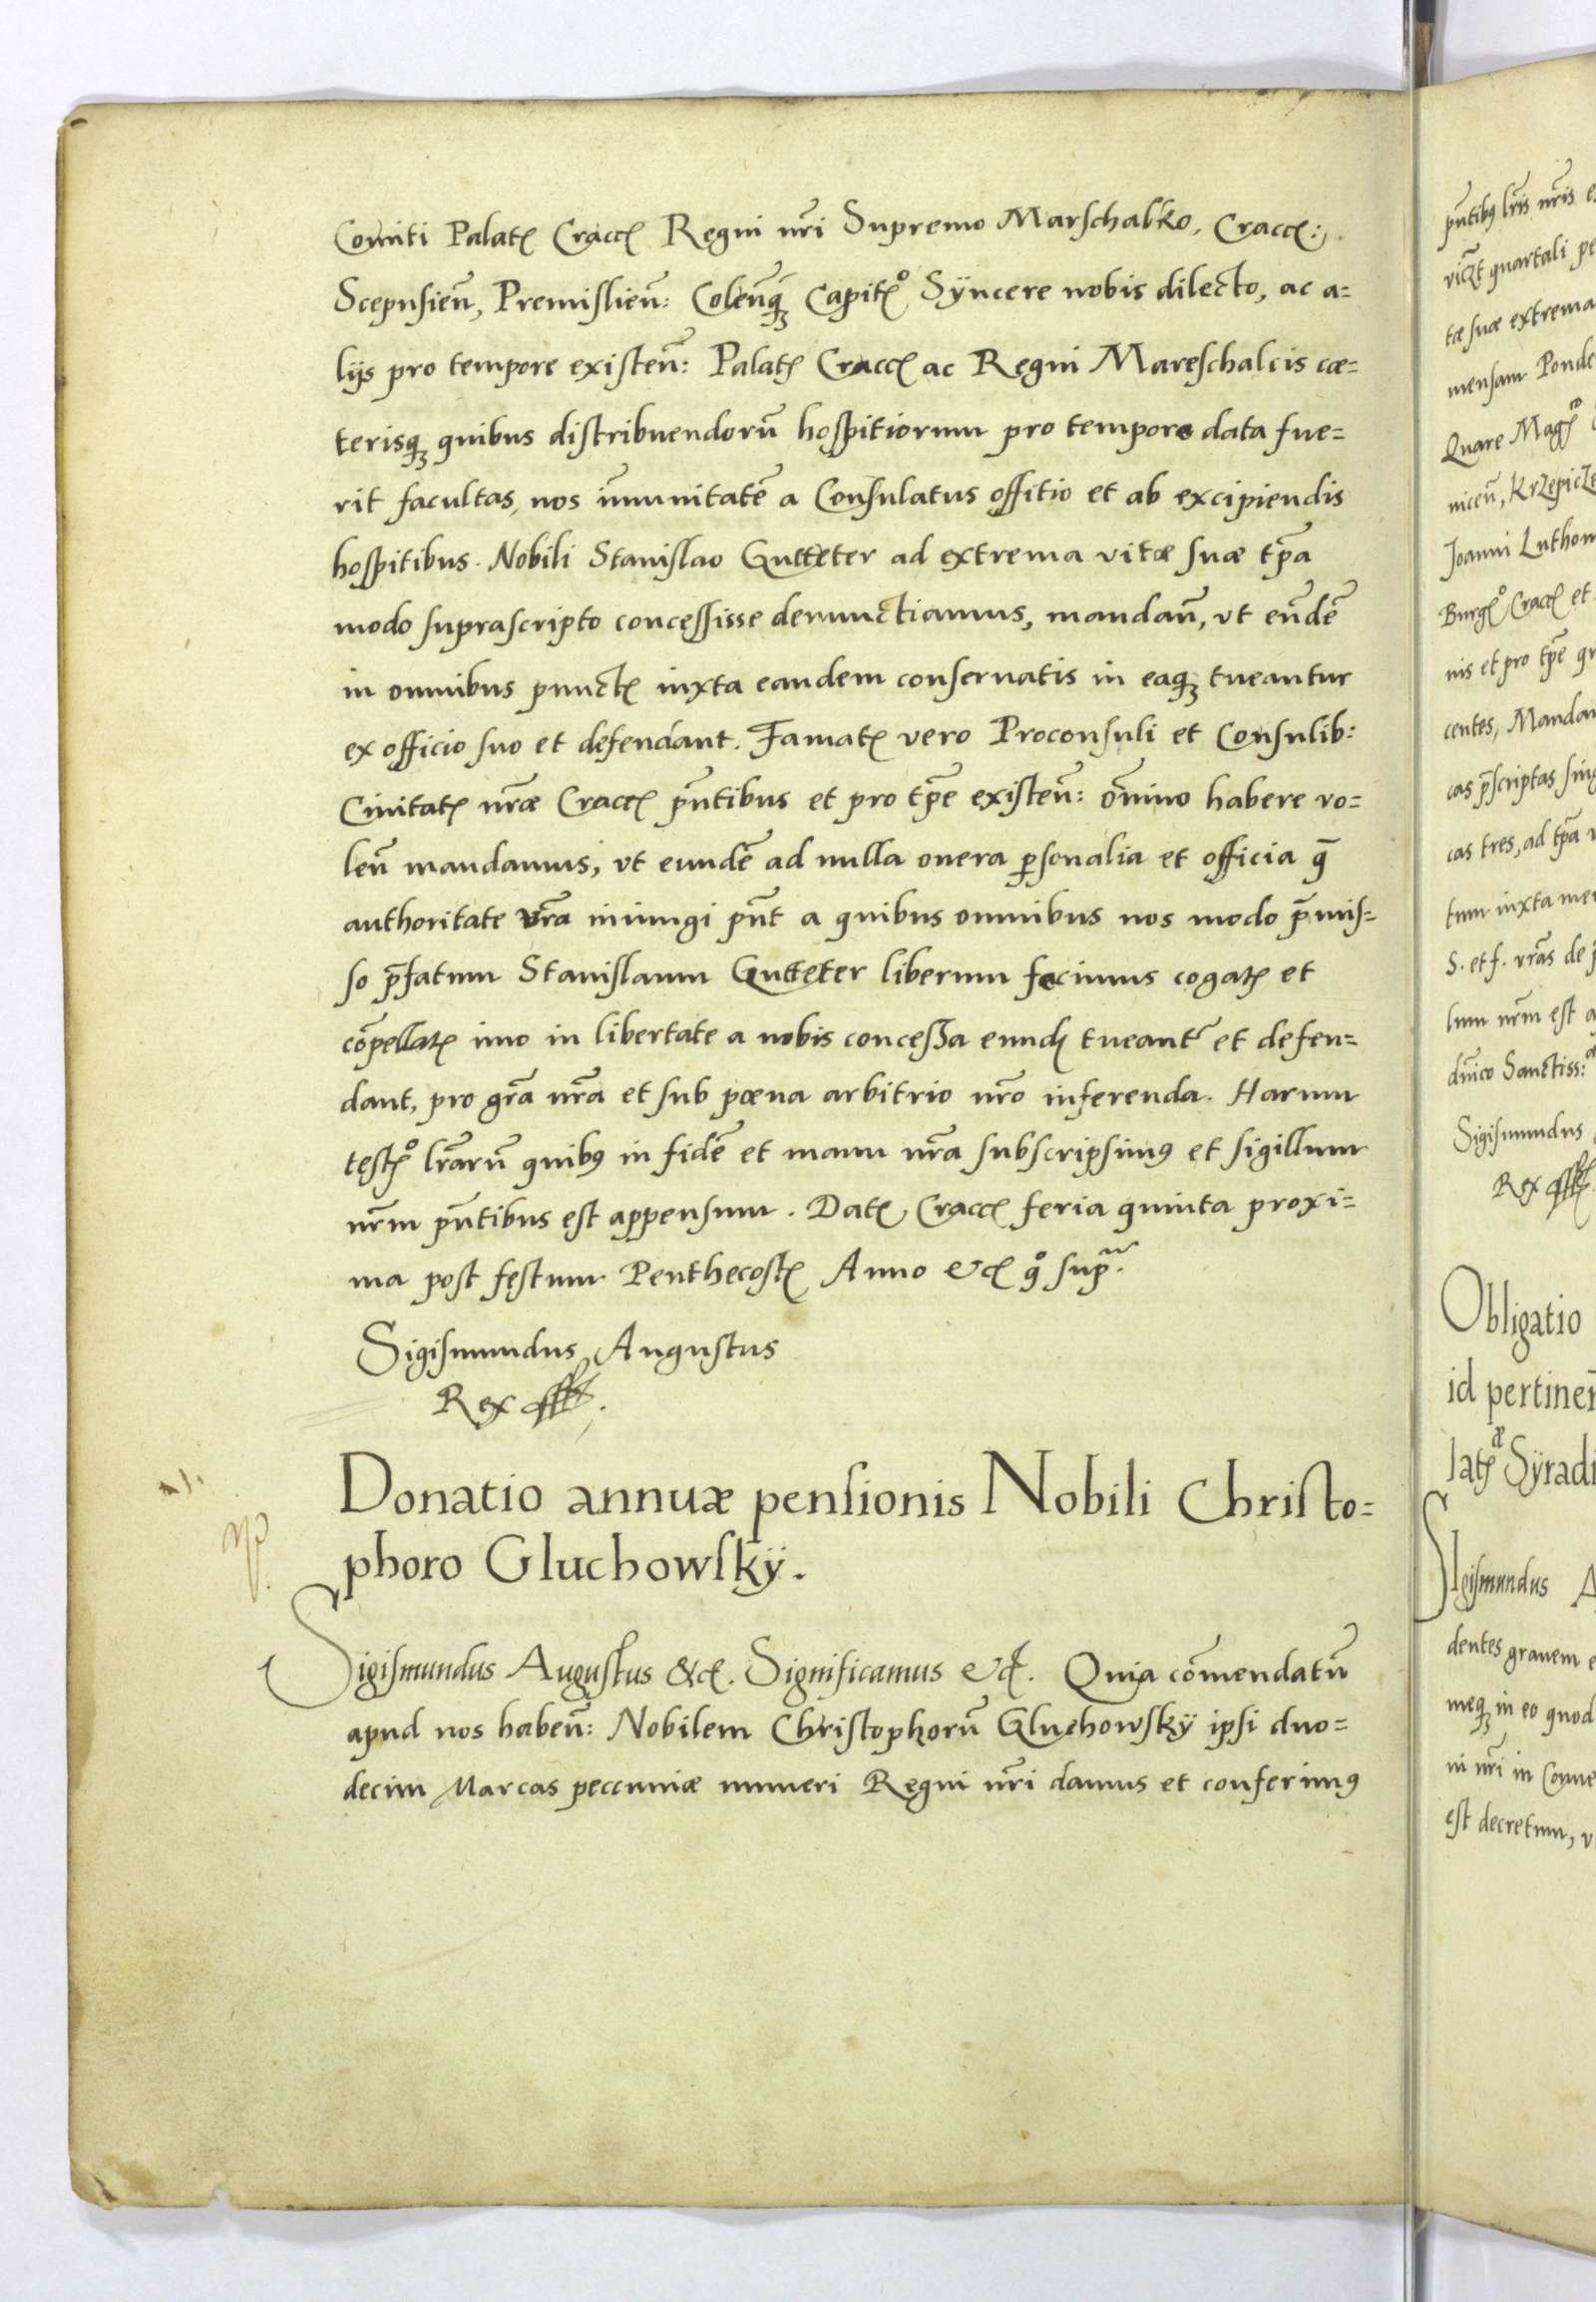 Comiti Palatꝭ Craccꝭ Regni nr̃i Supremo Marschalko, Craccꝭ:,
Scepusień, Premislień: Coleńq₃ Capitꝭº Sÿncere nobis dilecto, ac a=
lijs pro tempore existeñ: Palatꝭ Craccꝭ ac Regni Mareschalcis cæ=
terisq₃ quibus distribuendorũ hospitiorum pro tempore data fue=
rit facultas, nos im̃unitatẽ a Consulatus offitio et ab excipiendis
hospitibus. Nobili Stanislao Gutteter ad extrema vitæ suæ tp̃a
modo suprascripto concessisse denunctiamus, mandañ, vt eun̄dẽ
in omnibus punctꝭ iuxta eandem conseruatis in eaq₃ tueantur
ex officio suo et defendant. Famatꝭ vero Proconsuli et Consulib:
Ciuitatꝭ nr̃æ Craccꝭ pñtibus et pro tp̃e existeñ: om̃ino habere vo=
leñ mandamus, vt eundẽ ad nulla onera ꝑsonalia et officia q̃
authoritate vr̃a iniungi pñt a quibus omnibus nos modo p̃mis=
so p̃fatum Stanislaum Gutteter liberum fecimus cogatꝭ et
cõpellatꝭ imo in libertate a nobis concessa eundꝭ tueantr̃ et defen=
dant, pro gr̃a nr̃a et sub pœna arbitrio nr̃o inferenda. Harum
testꝭº lr̃arũ quibꝰ in fidẽ et manu nr̃a subscripsimꝰ et sigillum
nr̃m pñtibus est appensum. Datꝭ Craccꝭ feria quinta proxi=
ma post festum Penthecostꝭ Anno &cꝭ qº supª.
Sigismundus Augustus
Rex
Donatio annuæ pensionis Nobili Christo=
phoro Gluchowskÿ.
Sigismundus Augustus &cꝭ. Significamus &cꝭ. Quia com̃endatũ
apud nos habeñ: Nobilem Christophorũ Gluchowskÿ ipsi duo=
decim Marcas peccuniæ numeri Regni nr̃i damus et conferimꝰ
pñtibꝰ lr̃is nr̃is
quartali
tæ suæ extrema
mensam Ponde
Quare Magꝭº
niceñ, Krzepicze
Joanni Luthom
Burgꝭº Craccꝭ et
nis et pro tp̃e
centes, Mandam
cas p̃scriptas sing
cas tres, ad tp̃a
tum iuxta men
S. et f. vr̃as de
lum nr̃m est a
dñico Sanctiss:
Sigismundus
Rex
Obligatio
id pertineñ
latꝭæ Sÿradi
Sigismundus A
dentes grauem e
meq₃ in eo quod
ni nr̃i in Conue
est decretum, v